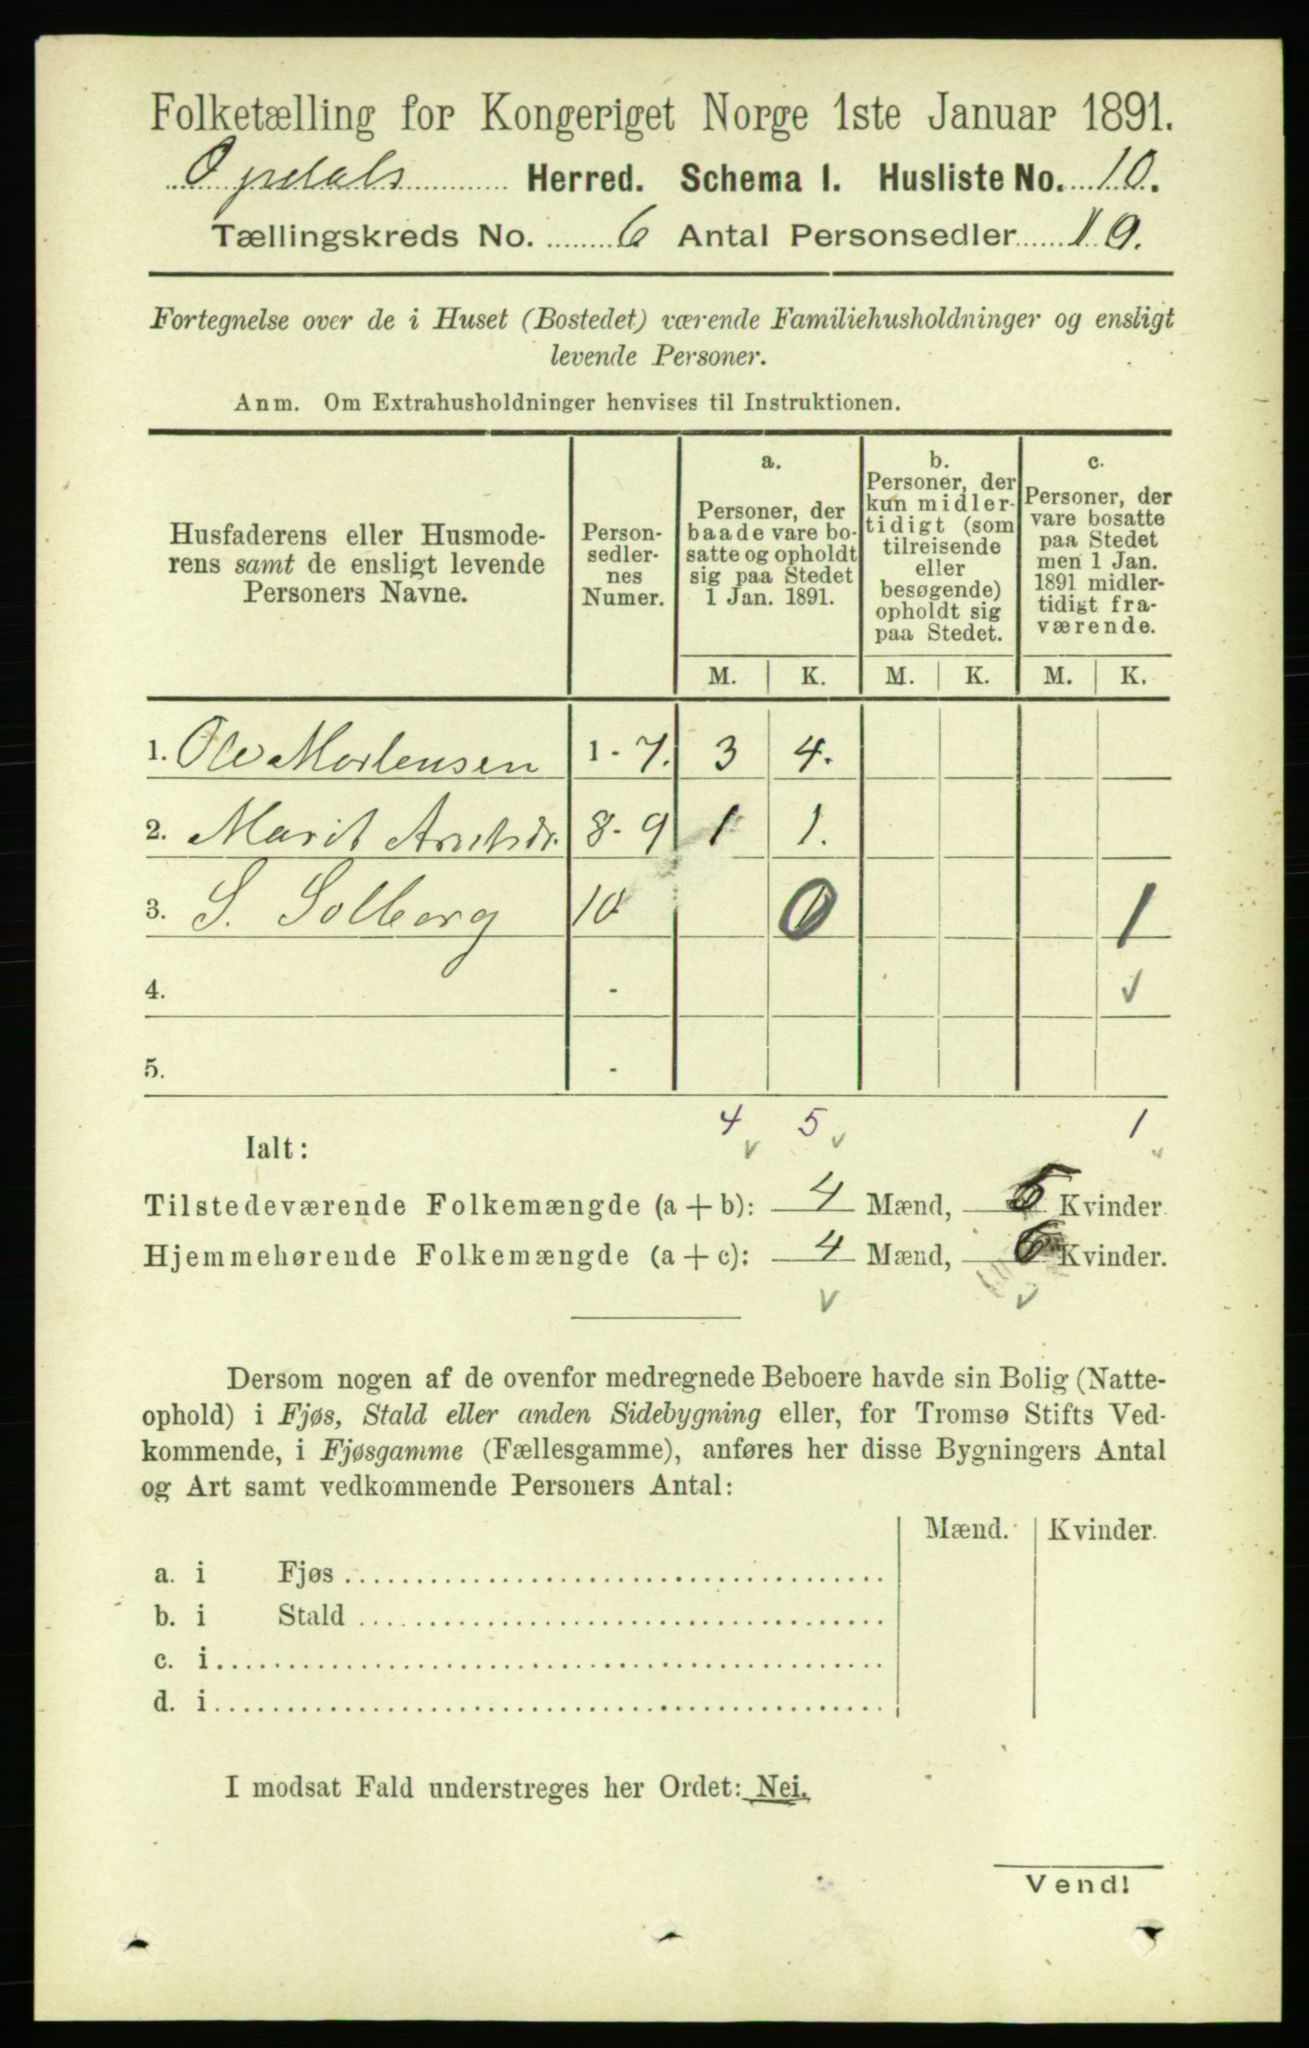 Folketælling for Kongeriget Norge 1ste Januar 1891.
Opdals Herred. Schema 1. Husliste No. 10.
Tællingskreds No. 6 Antal Personsedler 10.
Fortegnelse over de i Huset (Bostedet) værende Familiehusholdninger og ensligt
levende Personer.
Anm. Om Extrahusholdninger henvises til Instruktionen.
Husfaderens eller Husmode-
rens samt de ensligt levende
Personers Navne.
Person-
sedler-
nes
Numer.
a.
Personer, der
baade vare bo-
satte og opholdt
sig paa Stedet
1 Jan. 1891.
b.
Personer, der
kun midler-
tidigt (som
tilreisende
eller
besøgende)
opholdt sig
paa Stedet.
c.
Personer, der
vare bosatte
paa Stedet
men 1 Jan.
1891 midler-
tidigt fra-
værende.
M. K. M. K. M. K.
1. Ole Mortensen 1 - 7. 3 4.
2. Marit Arntsdr. 8 - 9 1 1.
3. S. Solberg 10 0 1
4. - ✓
5. -
4 5 1
Ialt: ✓ ✓ ✓
Tilstedeværende Folkemængde (a + b): 4 Mænd, 5 Kvinder
Hjemmehørende Folkemængde (a + c): 4 Mænd, 6 Kvinder.
✓ ✓
Dersom nogen af de ovenfor medregnede Beboere havde sin Bolig (Natte-
ophold) i Fjøs, Stald eller anden Sidebygning eller, for Tromsø Stifts Ved-
kommende, i Fjøsgamme (Fællesgamme), anføres her disse Bygningers Antal
og Art samt vedkommende Personers Antal:
Mænd. Kvinder.
a. i Fjøs
b. i Stald
c. i
d. i
I modsat Fald understreges her Ordet: Nei.
Vend!